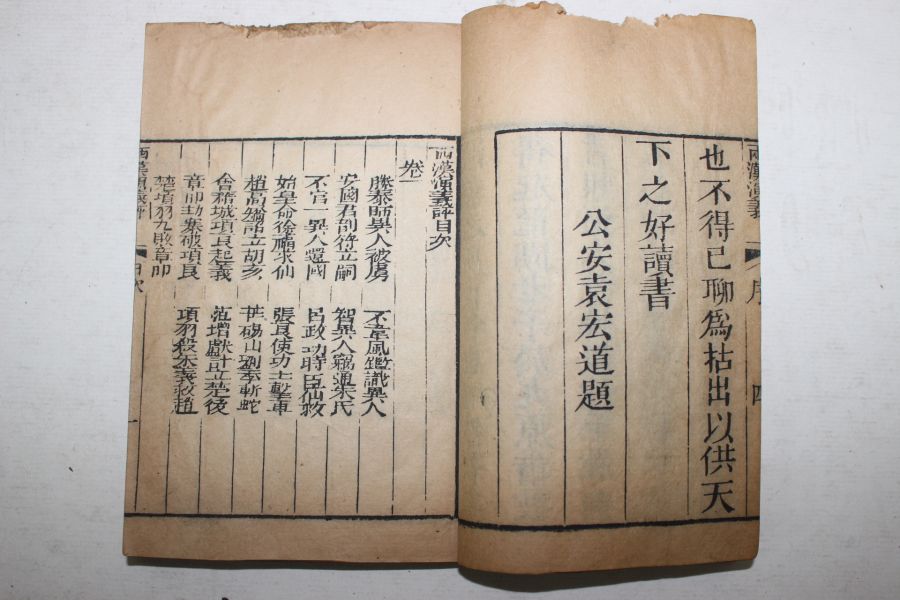 也不得已聊為枯出以供天
下之好讀書
公安袁宏道題
西漢演義
序
四
西漢演義評目次
卷一
滕泰師異人被虜
不韋風鑑識異人
安國君剖符立嗣
智異人竊通朱氏
不韋異人還國
呂政功時臣仙救
始皇命徐福求仙
張良使力士擊車
趙高矯詔立胡亥
芒碭山劉季斬蛇
會稽城項良起義
范增獻計立楚後
章邯劫寨破項良
項羽殺宋義救趙
楚項羽九敗章邯
西漢演義評
目次
一